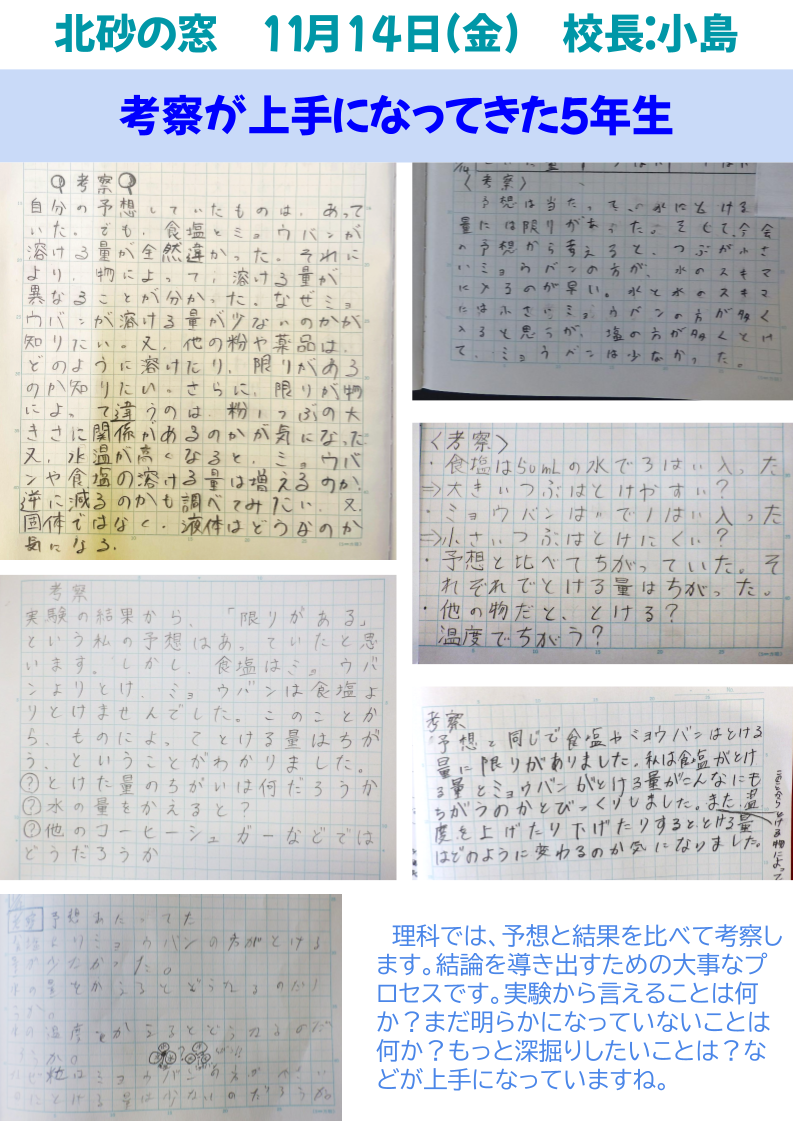 北砂の窓 11月14日(金) 校長:小島
考察が上手になってきた5年生
考察
自分の予想していたものは、あって
いた。でも、食塩とミョウバンが
溶ける量が全然違かった。それに
より、物によって、溶ける量が
異なることが分かった。なぜミョ
ウバンが溶ける量が少ないのかが
知りたい。又、他の粉や薬品は、
どのように溶けたり、限りがある
のか知りたい。さらに、限りが物
によって違うのは、粉1つぶの大
きさに関係があるのかが気になった
又、水温が高くなると、ミョウバ
ンや食塩の溶ける量は増えるのか、
逆に減るのかも調べてみたい。又、
固体ではなく、液体はどうなのか
気になる。
〈考察〉
予想は当たって、水にとける
量には限りがあった。そして、今会
の予想から考えると、つぶが小さ
いミョウバンの方が、水のスキマ
に入るのが早い。水と水のスキマ
には小さいミョウバンの方が多く
入ると思うが、塩の方が多くとけ
て、ミョウバンは少なかった。
〈考察〉
・食塩は50mLの水で3はい入った
⇒大きいつぶはとけやすい?
・ミョウバンは〃で1はい入った
⇒小さいつぶはとけにくい?
・予想と比べてちがっていた。そ
れぞれでとける量はちがった。
・他の物だと、とける?
温度でちがう?
考察
実験の結果から、「限りがある」
という私の予想はあっていたと思
います。しかし、食塩はミョウバ
ンよりとけ、ミョウバンは食塩よ
りとけませんでした。このことか
ら、ものによってとける量はちが
う、ということがわかりました。
?とけた量のちがいは何だろうか
?水の量をかえると?
?他のコーヒーシュガーなどでは
どうだろうか
考察
予想と同じで食塩やミョウバンはとける
量に限りがありました。私は食塩がとけ
る量とミョウバンがとける量がこんなにも
ちがうのかとびっくりしました。また、温
度を上げたり下げたりすると、とける量
はどのように変わるのか気になりました。
とける物によって
考察 予想あたってた
ミョウバンの方がとける
量が少なかった。
水の量をかえるとどうなるのだろ
うか。
水の温度をかえるとどうなるのだ
ろうか。
理科では、予想と結果を比べて考察し
ます。結論を導き出すための大事なプ
ロセスです。実験から言えることは何
か?まだ明らかになっていないことは
何か?もっと深掘りしたいことは?な
どが上手になっていますね。